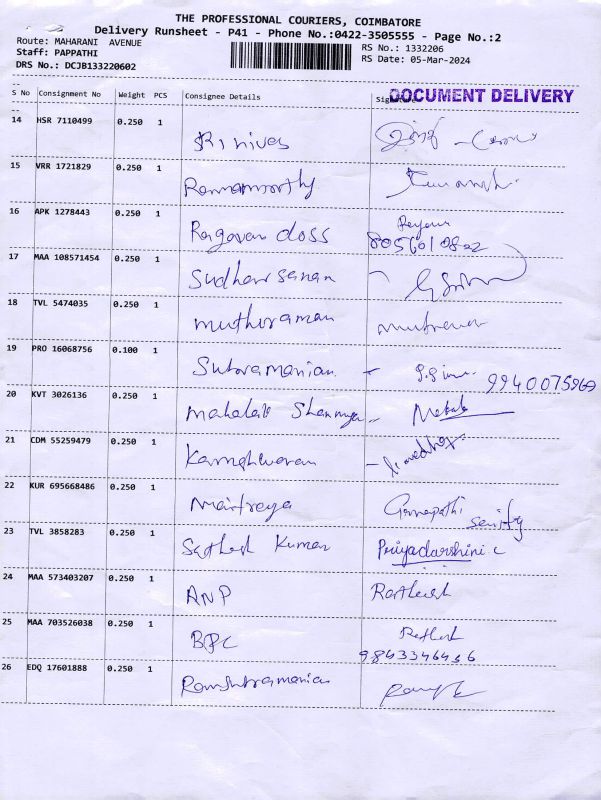 THE PROFESSIONAL COURIERS, COIMBATORE
Delivery Runsheet - P41 - Phone No.:0422-3505555 - Page No.:2
Route: MAHARANI AVENUE
RS No.: 1332206
Staff: PAPPATHI
RS Date: 05-Mar-2024
DRS No.: DCJB133220602
S No Consignment No Weight PCS Consignee Details
DOCUMENT DELIVERY
14 HSR 7110499 0.250 1
15 VRR 1721829 0.250 1
Ramamoorthy
16 APK 1278443 0.250 1
Ragavan doss
8056010822
17 MAA 108571454 0.250 1
Sudharsanan
18 TVL 5474035 0.250 1
muthuraman
19 PRO 16068756 0.100 1
Subramanian
9940075969
20 KVT 3026136 0.250 1
21 CDM 55259479 0.250 1
22 KUR 695668486 0.250 1
Maitreya Ganapathi
23 TVL 3858283 0.250 1
Sathish Kumar Priyadarshini c
24 MAA 573403207 0.250 1
ANP
25 MAA 703526038 0.250 1
BPC
9843346436
26 EDQ 17601888 0.250 1
Ramsubramanian